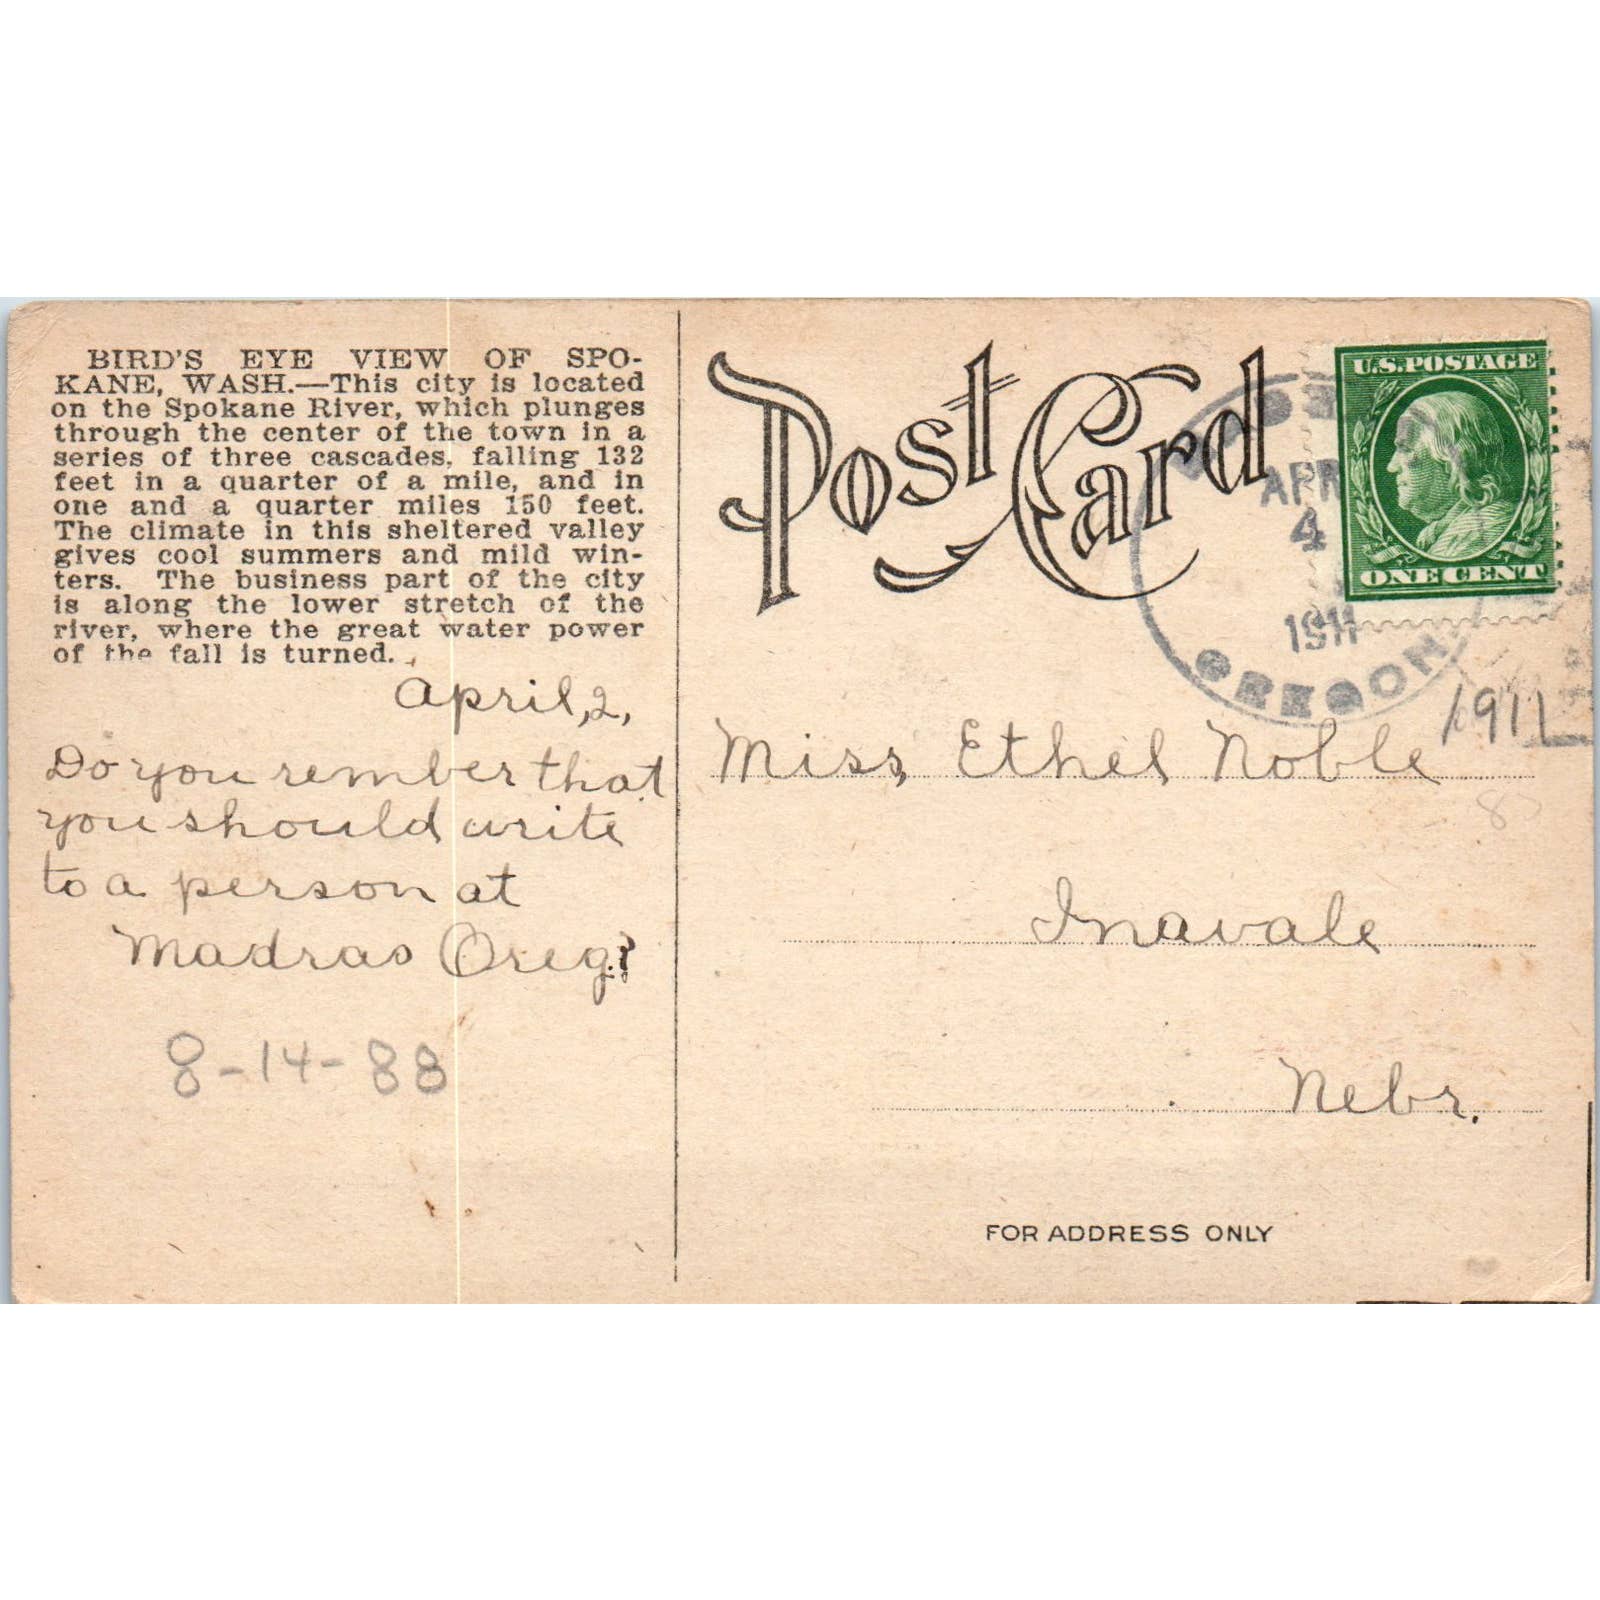 BIRD'S EYE VIEW OF SPO-
KANE, WASH.—This city is located
on the Spokane River, which plunges
through the center of the town in a
series of three cascades, falling 132
feet in a quarter of a mile, and in
one and a quarter miles 150 feet.
The climate in this sheltered valley
gives cool summers and mild win-
ters. The business part of the city
is along the lower stretch of the
river, where the great water power
of the fall is turned.
April, 2,
Do you rember that
you should write
to a person at
Madras Oreg?
8-14-88
Post Card
U.S. POSTAGE
ONE CENT
APR
4
1911
OREGON
1911
Miss, Ethel Noble
8
Inavale
Nebr.
FOR ADDRESS ONLY